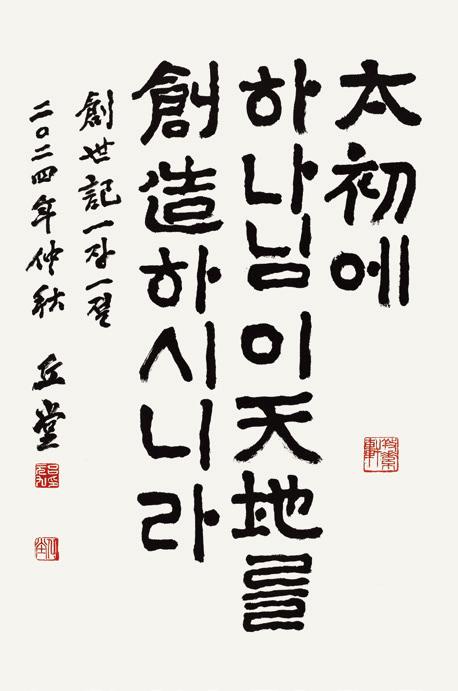 太初에
하나님이天地를
創造하시니라
創世記一장一절
二〇二四年仲秋 丘堂